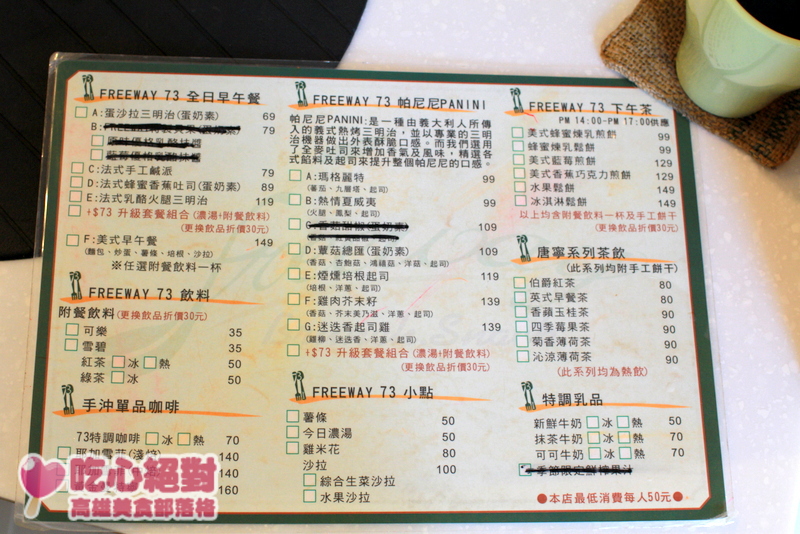 FREEWAY 73 全日早午餐
A:蛋沙拉三明治(蛋奶素) 69
79
C:法式手工鹹派 79
D:法式蜂蜜香蕉吐司(蛋奶素) 89
E:法式乳酪火腿三明治 119
+$73 升級套餐組合(濃湯+附餐飲料)
(更換飲品折價30元)
F:美式早午餐 149
(麵包、炒蛋、薯條、培根、沙拉)
※任選附餐飲料一杯
FREEWAY 73 飲料
附餐飲料(更換飲品折價30元)
可樂 35
雪碧 35
紅茶 冰 熱 50
綠茶 冰 熱 50
手沖單品咖啡
73特調咖啡 冰 熱 70
耶加雪菲(淺焙) 140
140
160
FREEWAY 73 帕尼尼PANINI
帕尼尼PANINI:是一種由義大利人所傳
入的義式熱烤三明治,並以專業的三明
治機器做出外表酥脆口感。而我們選用
了全麥吐司來增加香氣及風味,精選各
式餡料及起司來提升整個帕尼尼的口感。
A:瑪格麗特 99
(蕃茄、九層塔、起司)
B:熱情夏威夷 99
(火腿、鳳梨、起司)
109
D:蕈菇總匯(蛋奶素) 109
(香菇、杏鮑菇、鴻禧菇、洋菇、起司)
E:煙燻培根起司 119
(培根、洋蔥、起司)
F:雞肉芥末籽 139
(香菇、芥末美乃滋、洋蔥、起司)
G:迷迭香起司雞 139
(雞柳、迷迭香、洋蔥、起司)
+$73 升級套餐組合(濃湯+附餐飲料)
(更換飲品折價30元)
FREEWAY 73 小點
薯條 50
今日濃湯 50
雞米花 80
沙拉 100
綜合生菜沙拉
水果沙拉
FREEWAY 73 下午茶
PM 14:00-PM 17:00供應
美式蜂蜜煉乳煎餅 99
蜂蜜煉乳鬆餅 99
美式藍莓煎餅 129
美式香蕉巧克力煎餅 129
水果鬆餅 149
冰淇淋鬆餅 149
以上均含附餐飲料一杯及手工餅干
(更換飲品折價30元)
唐寧系列茶飲
(此系列均附手工餅干)
伯爵紅茶 80
英式早餐茶 80
香蘋玉桂茶 90
四季莓果茶 90
菊香薄荷茶 90
沁涼薄荷茶 90
(此系列均為熱飲)
特調乳品
新鮮牛奶 冰 熱 50
抹茶牛奶 冰 熱 70
可可牛奶 冰 熱 70
季節限定鮮榨果汁
●本店最低消費每人50元●
吃心絕對
高雄美食部落格